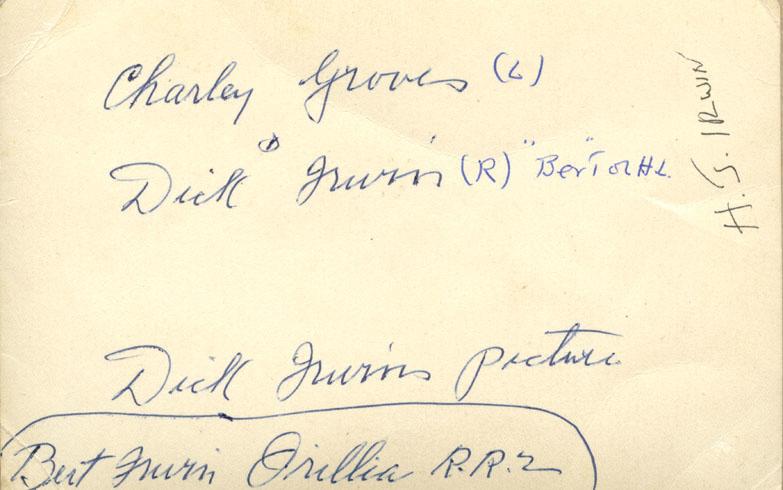 Charley Groves (L)
&
Dick Irwin (R) "Bert" or HL.
Dick Irwins picture
Bert Irwin Orillia R.R.2
H.J. IRWIN